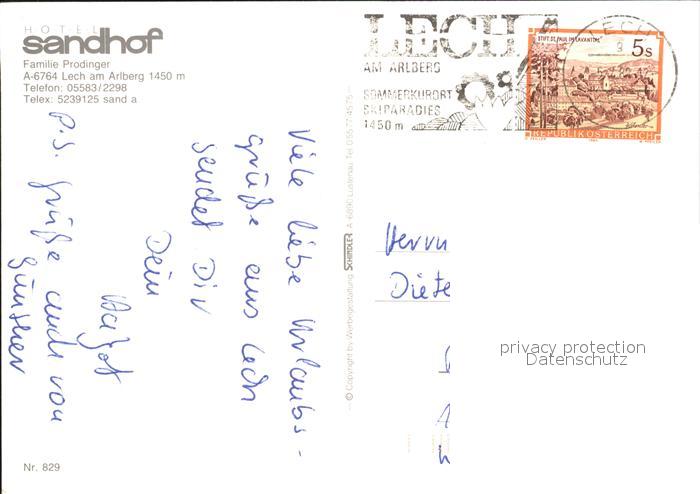 HOTEL
sandhof
Familie Prodinger
A-6764 Lech am Arlberg 1450 m
Telefon: 05583/2298
Telex: 5239125 sand a
Viele liebe Urlaubs-
grüße aus Lech
sendet Dir
Dein
P.S. Grüße auch von
Günther
Nr. 829
© Copyright by Werbegestaltung SCHINDLER A-6890 Lustenau, Tel. 05577/4575
LECH
AM ARLBERG
SOMMERKURORT
SKIPARADIES
1450 m
LECH
STIFT ST. PAUL IM LAVANTTAL
5s
REPUBLIK ÖSTERREICH
Herrn
Diete
privacy protection
Datenschutz